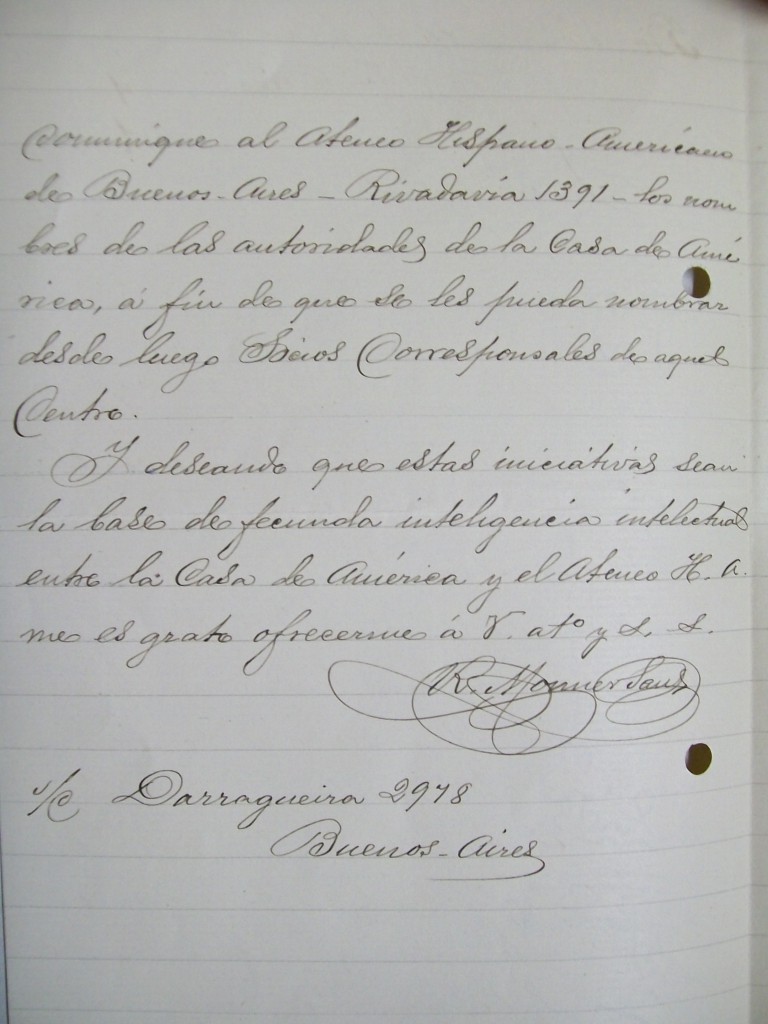 Comunique al Ateneo Hispano-Américano
de Buenos-Aires - Rivadavia 1391 - los nom
bres de las autoridades de la Casa de Amé
rica, á fin de que se les pueda nombrar
desde luego Sócios Corresponsales de aquel
Centro.
Y deseando que estas iniciativas sean
la base de fecunda inteligencia intelectual
entre la Casa de América y el Ateneo H. A.
me es grato ofrecerme á V. atº y S. S.
R. Monner Sans
s/c Darragueira 2978
Buenos-Aires